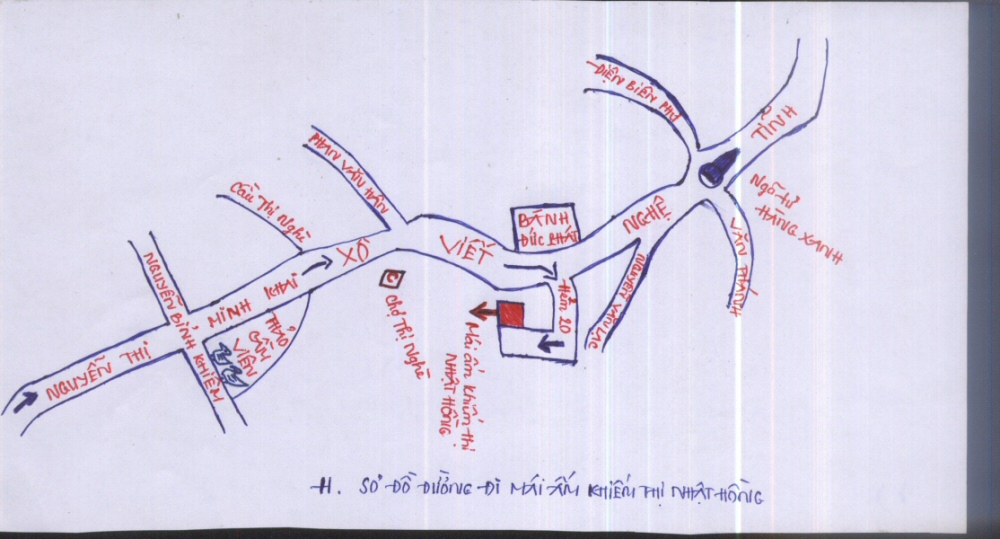 ĐIỆN BIÊN PHỦ
TĨNH
NGHỆ
VIẾT
XÔ
Ngã tư
HÀNG XANH
VĂN THÁNH
PHAN VĂN HÂN
Cầu Thị Nghè
BÁNH
ĐỨC PHÁT
NGUYỄN VĂN LẠC
Hẻm 20
Chợ Thị Nghè
Mái ấm khiếm thị
NHẬT HỒNG
NGUYỄN THỊ
MINH KHAI
NGUYỄN BỈNH KHIÊM
THẢO
CẦM
VIÊN
H. SƠ ĐỒ ĐƯỜNG ĐI MÁI ẤM KHIẾM THỊ NHẬT HỒNG